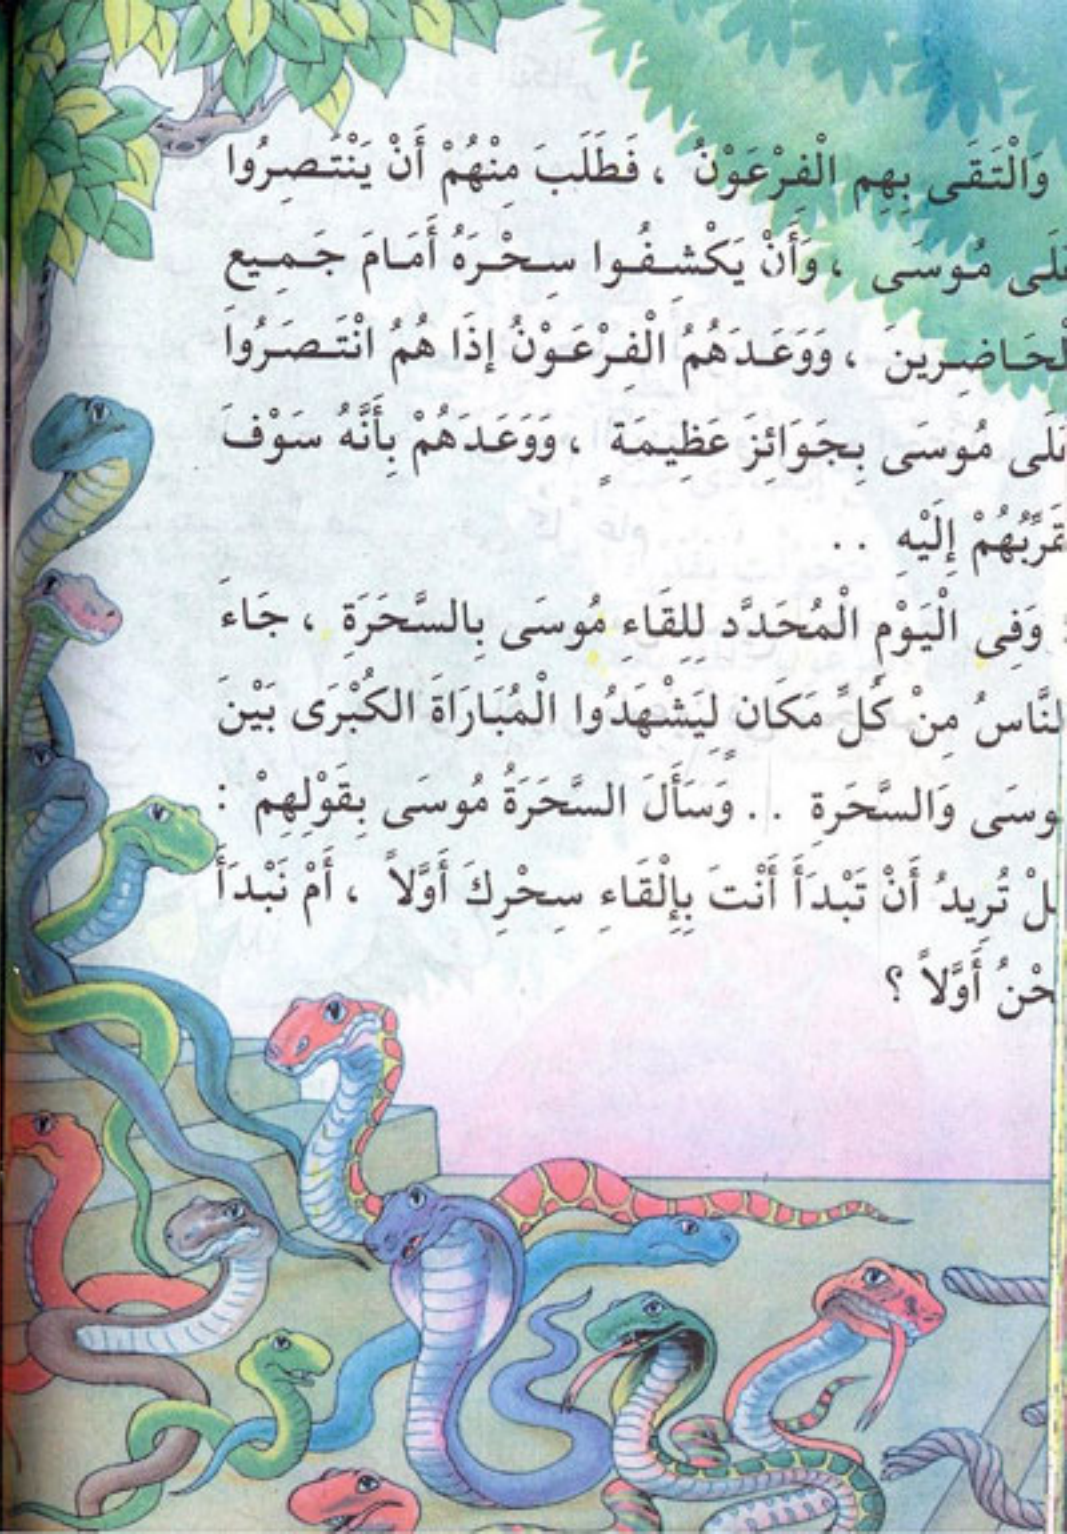 وَالْتَقَى بِهِم الْفِرْعَوْنُ ، فَطَلَبَ مِنْهُمْ أَنْ يَنْتَصِرُوا
عَلَى مُوسَى ، وَأَنْ يَكْشِفُوا سِحْرَهُ أَمَامَ جَمِيعِ
الْحَاضِرِينَ ، وَوَعَدَهُمُ الْفِرْعَوْنُ إِذَا هُمُ انْتَصَرُوا
عَلَى مُوسَى بِجَوَائِزَ عَظِيمَةٍ ، وَوَعَدَهُمْ بِأَنَّهُ سَوْفَ
يُقَرِّبُهُمْ إِلَيْهِ ..
وَفِى الْيَوْمِ الْمُحَدَّدِ لِلِقَاءِ مُوسَى بِالسَّحَرَةِ ، جَاءَ
النَّاسُ مِنْ كُلِّ مَكَانٍ لِيَشْهَدُوا الْمُبَارَاةَ الكُبْرَى بَيْنَ
مُوسَى وَالسَّحَرَةِ .. وَسَأَلَ السَّحَرَةُ مُوسَى بِقَوْلِهِمْ :
هَلْ تُرِيدُ أَنْ تَبْدَأَ أَنْتَ بِإِلْقَاءِ سِحْرِكَ أَوَّلاً ، أَمْ نَبْدَأَ
نَحْنُ أَوَّلاً ؟